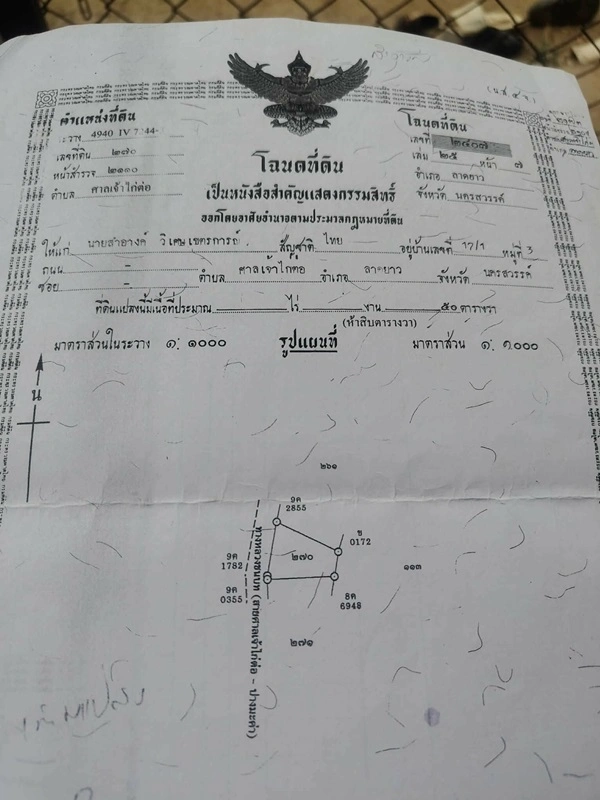 (น.ส.๔จ)
ตำแหน่งที่ดิน
ระวาง 4940 IV 7244-
เลขที่ดิน ๒๗๐
หน้าสำรวจ ๒๑๑๐
ตำบล ศาลเจ้าไก่ต่อ
โฉนดที่ดิน
เลขที่ ๒๘๐๗
เล่ม ๒๕ หน้า ๗
อำเภอ ลาดยาว
จังหวัด นครสวรรค์
โฉนดที่ดิน
เป็นหนังสือสำคัญแสดงกรรมสิทธิ์
ออกโดยอาศัยอำนาจตามประมวลกฎหมายที่ดิน
ให้แก่ นายสำอางค์ วิเศษเขตรการณ์ สัญชาติ ไทย อยู่บ้านเลขที่ 17/1 หมู่ที่ 3
ถนน - ตำบล ศาลเจ้าไก่ต่อ อำเภอ ลาดยาว จังหวัด นครสวรรค์
ซอย -
ที่ดินแปลงนี้มีเนื้อที่ประมาณ ไร่ งาน ๕๐ ตารางวา
(ห้าสิบตารางวา)
มาตราส่วนในระวาง ๑: ๑๐๐๐
รูปแผนที่
มาตราส่วน ๑: ๑๐๐๐
น
๒๖๑
9ค
2855
ข
0172
๒๗๐
9ค
1782
๑๑๓
9ค
0355
8ค
6948
๒๗๑
ทางหลวงชนบท (สายศาลเจ้าไก่ต่อ - ปางมะค่า)